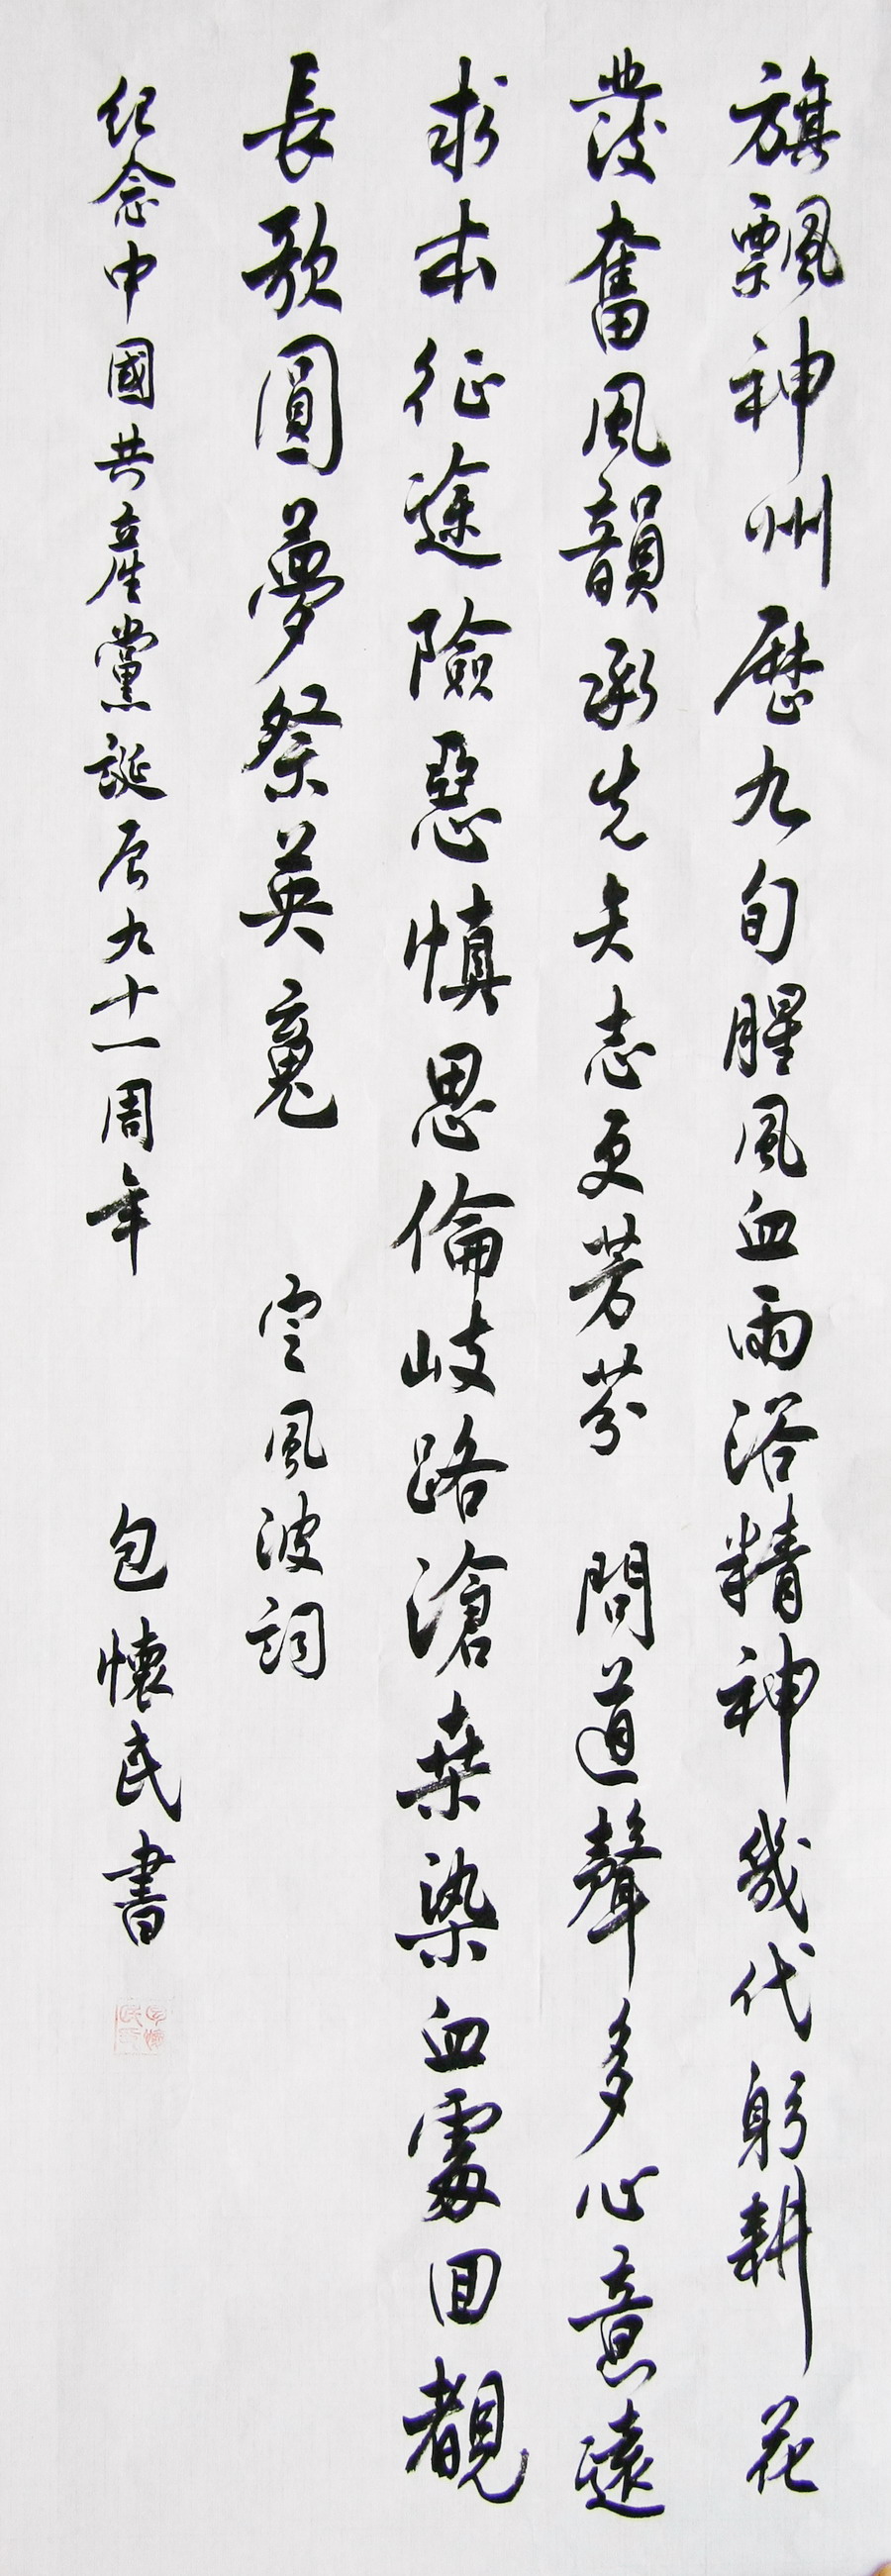 旗飄神州歷九旬腥風血雨浴精神幾代躬耕花
發奮風韻承先矢志更芳芬問道聲多心意遠
求本征途險惡慎思倫岐路滄桒染血處回覩
長歌圓夢祭英䰟定風波詞
纪念中國共產黨誕辰九十一周年包懷民書